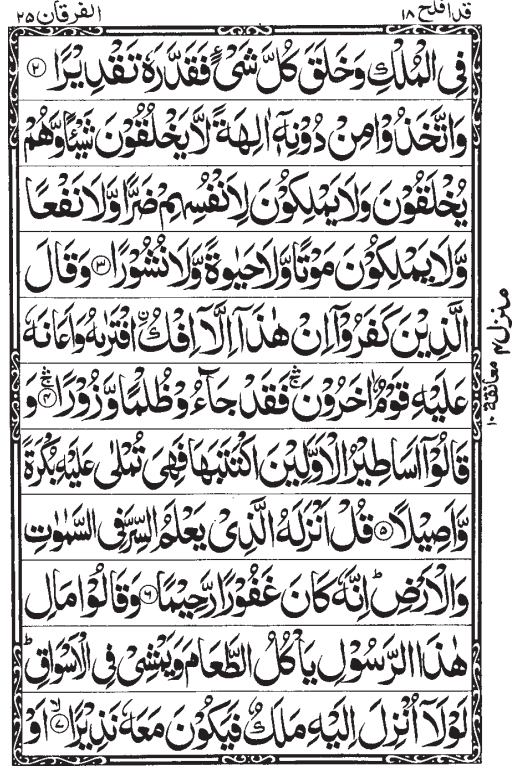 قد افلح ١٨
الفرقان ٢٥
فِى الْمُلْكِ وَخَلَقَ كُلَّ شَىْءٍ فَقَدَّرَهٗ تَقْدِيْرًا ﴿٢﴾
وَاتَّخَذُوْا مِنْ دُوْنِهٖۤ اٰلِهَةً لَّا يَخْلُقُوْنَ شَيْئًا وَّهُمْ
يُخْلَقُوْنَ وَلَا يَمْلِكُوْنَ لِاَنْفُسِهِمْ ضَرًّا وَّلَا نَفْعًا
وَّلَا يَمْلِكُوْنَ مَوْتًا وَّلَا حَيٰوةً وَّلَا نُشُوْرًا ﴿٣﴾ وَقَالَ
الَّذِيْنَ كَفَرُوْۤا اِنْ هٰذَاۤ اِلَّاۤ اِفْكُ اۨفْتَرٰىهُ وَاَعَانَهٗ
عَلَيْهِ قَوْمٌ اٰخَرُوْنَ ۛۚ فَقَدْ جَآءُوْ ظُلْمًا وَّزُوْرًا ۛۚ ﴿٤﴾ وَ
قَالُوْۤا اَسَاطِيْرُ الْاَوَّلِيْنَ اكْتَتَبَهَا فَهِىَ تُمْلٰى عَلَيْهِ بُكْرَةً
وَّاَصِيْلًا ﴿٥﴾ قُلْ اَنْزَلَهُ الَّذِىْ يَعْلَمُ السِّرَّ فِى السَّمٰوٰتِ
وَالْاَرْضِ ؕ اِنَّهٗ كَانَ غَفُوْرًا رَّحِيْمًا ﴿٦﴾ وَقَالُوْا مَالِ
هٰذَا الرَّسُوْلِ يَاْكُلُ الطَّعَامَ وَيَمْشِىْ فِى الْاَسْوَاقِ ؕ
لَوْلَاۤ اُنْزِلَ اِلَيْهِ مَلَكٌ فَيَكُوْنَ مَعَهٗ نَذِيْرًا ۙ ﴿٧﴾ اَوْ
منزل ٤ معانقة ١٠